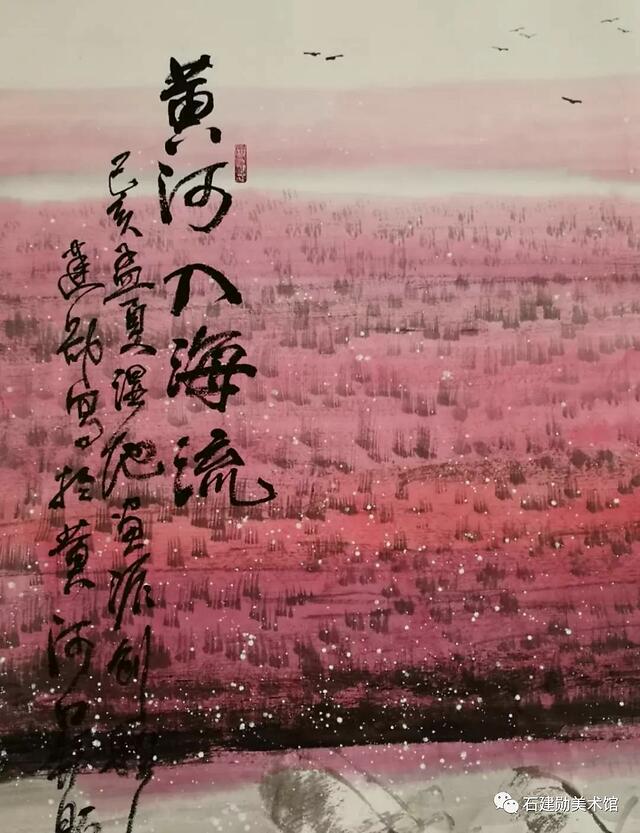 黄河入海流
己亥孟夏湿地画派创
建勋写於黄河口
石建勋美术馆